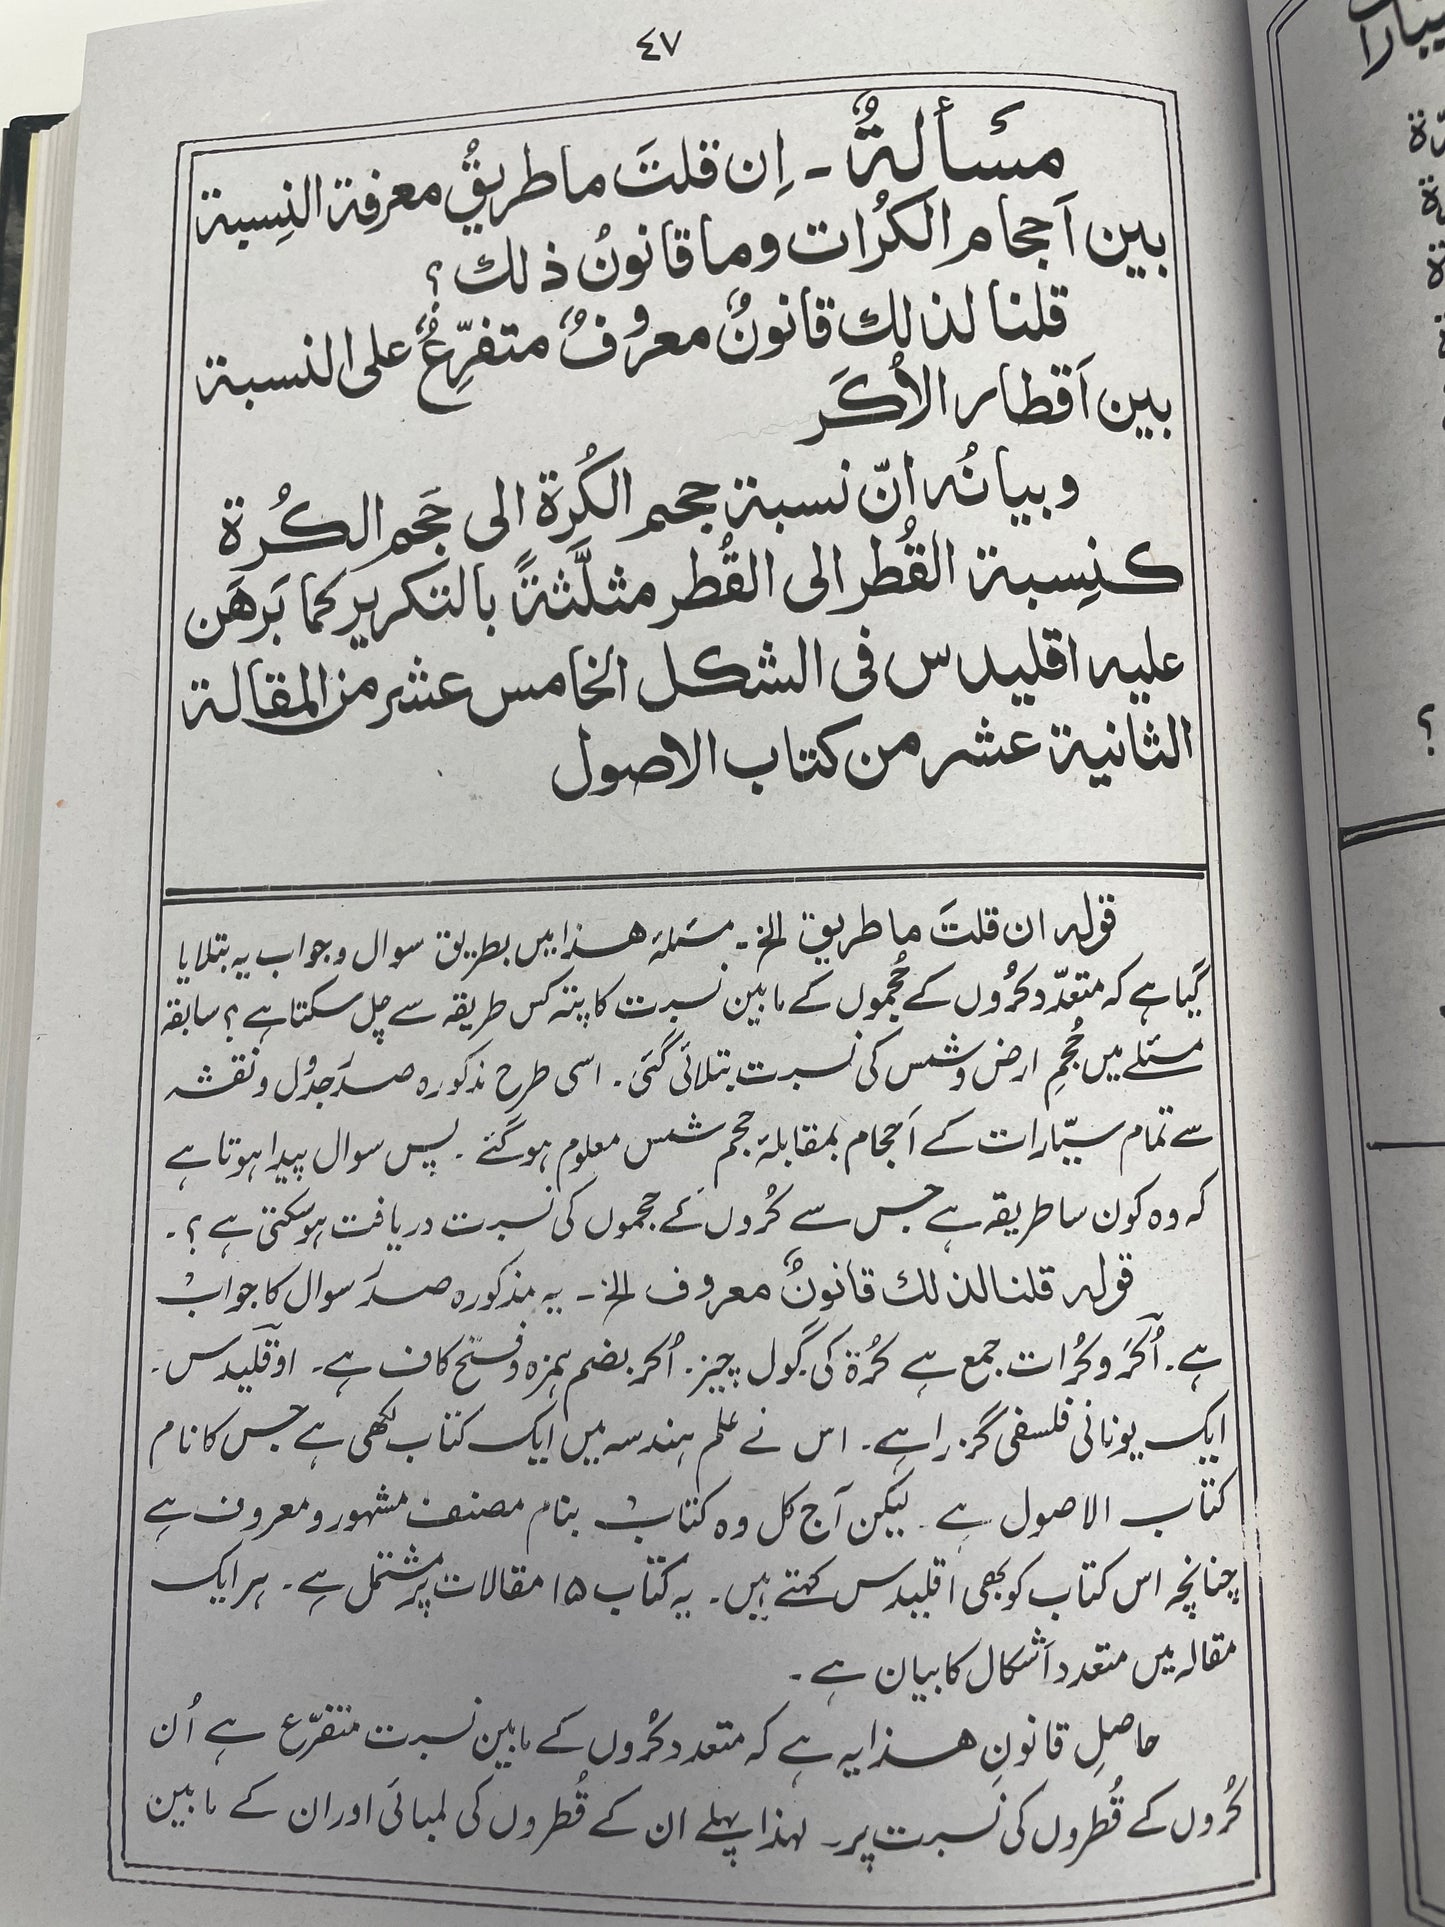 ٤٧
مسَألةٌ ـ اِن قلتَ ما طريقُ معرفة النِسبة
بين اَحجام الكُرات وما قانونُ ذلك ؟
قلنا لذلك قانونٌ معروفٌ متفرِّعٌ على النسبة
بين اَقطار الاُكَر
وبيانُه انّ نسبة حجم الكُرة الى حَجم الكُرة
كنِسبة القُطر الى القُطر مثلَّثةً بالتكرير كما بَرهَن
عليه اقليدس فى الشكل الخامس عشر من المقالة
الثانية عشر من كتاب الاصول
قولہ ان قلتَ ما طریق الخ ـ مسئلۂ ھذا میں بطریق سوال وجواب یہ بتلایا
گیا ہے کہ متعدّد کُروں کے حُجموں کے مابین نسبت کا پتہ کس طریقہ سے چل سکتا ہے ؟ سابقہ
مسئلے میں حُجمِ ارض وشمس کی نسبت بتلائی گئی ۔ اسی طرح مذکورہ صدَر جدْول ونقشہ
سے تمام سیّارات کے اَحجام بمقابلۂ حجم شمس معلوم ہوگئے ۔ پس سوال پیدا ہوتا ہے
کہ وہ کون سا طریقہ ہے جس سے کُروں کے حجموں کی نسبت دریافت ہوسکتی ہے ؟ ۔
قولہ قلنا لذلك قانونٌ معروف الخ ـ یہ مذکورہ صدَر سوال کا جوابْ
ہے ۔ اُکَر وکُرات جمع ہے کُرۃ کی گول چیز ۔ اُکر بضم ہمزہ وفتح کاف ہے ۔ اوقلیدس ۔
ایک یونانی فلسفی گزرا ہے ۔ اس نے علم ہندسہ میں ایک کتاب لکھی ہے جس کا نام
کتاب الاصول ہے ۔ لیکن آج کل وہ کتابْ بنام مصنف مشہور ومعروف ہے
چنانچہ اس کتاب کو بھی اقلیدس کہتے ہیں ۔ یہ کتاب ۱۵ مقالات پر مشتمل ہے ۔ ہر ایک
مقالہ میں متعدد اَشکال کا بیان ہے ۔
حاصلِ قانونِ ھذا یہ ہے کہ متعدد کُروں کے مابین نسبت متفرّع ہے اُن
کُروں کے قُطروں کی نسبت پر ۔ لہذا پہلے ان کے قُطروں کی لمبائی اور ان کے مابین